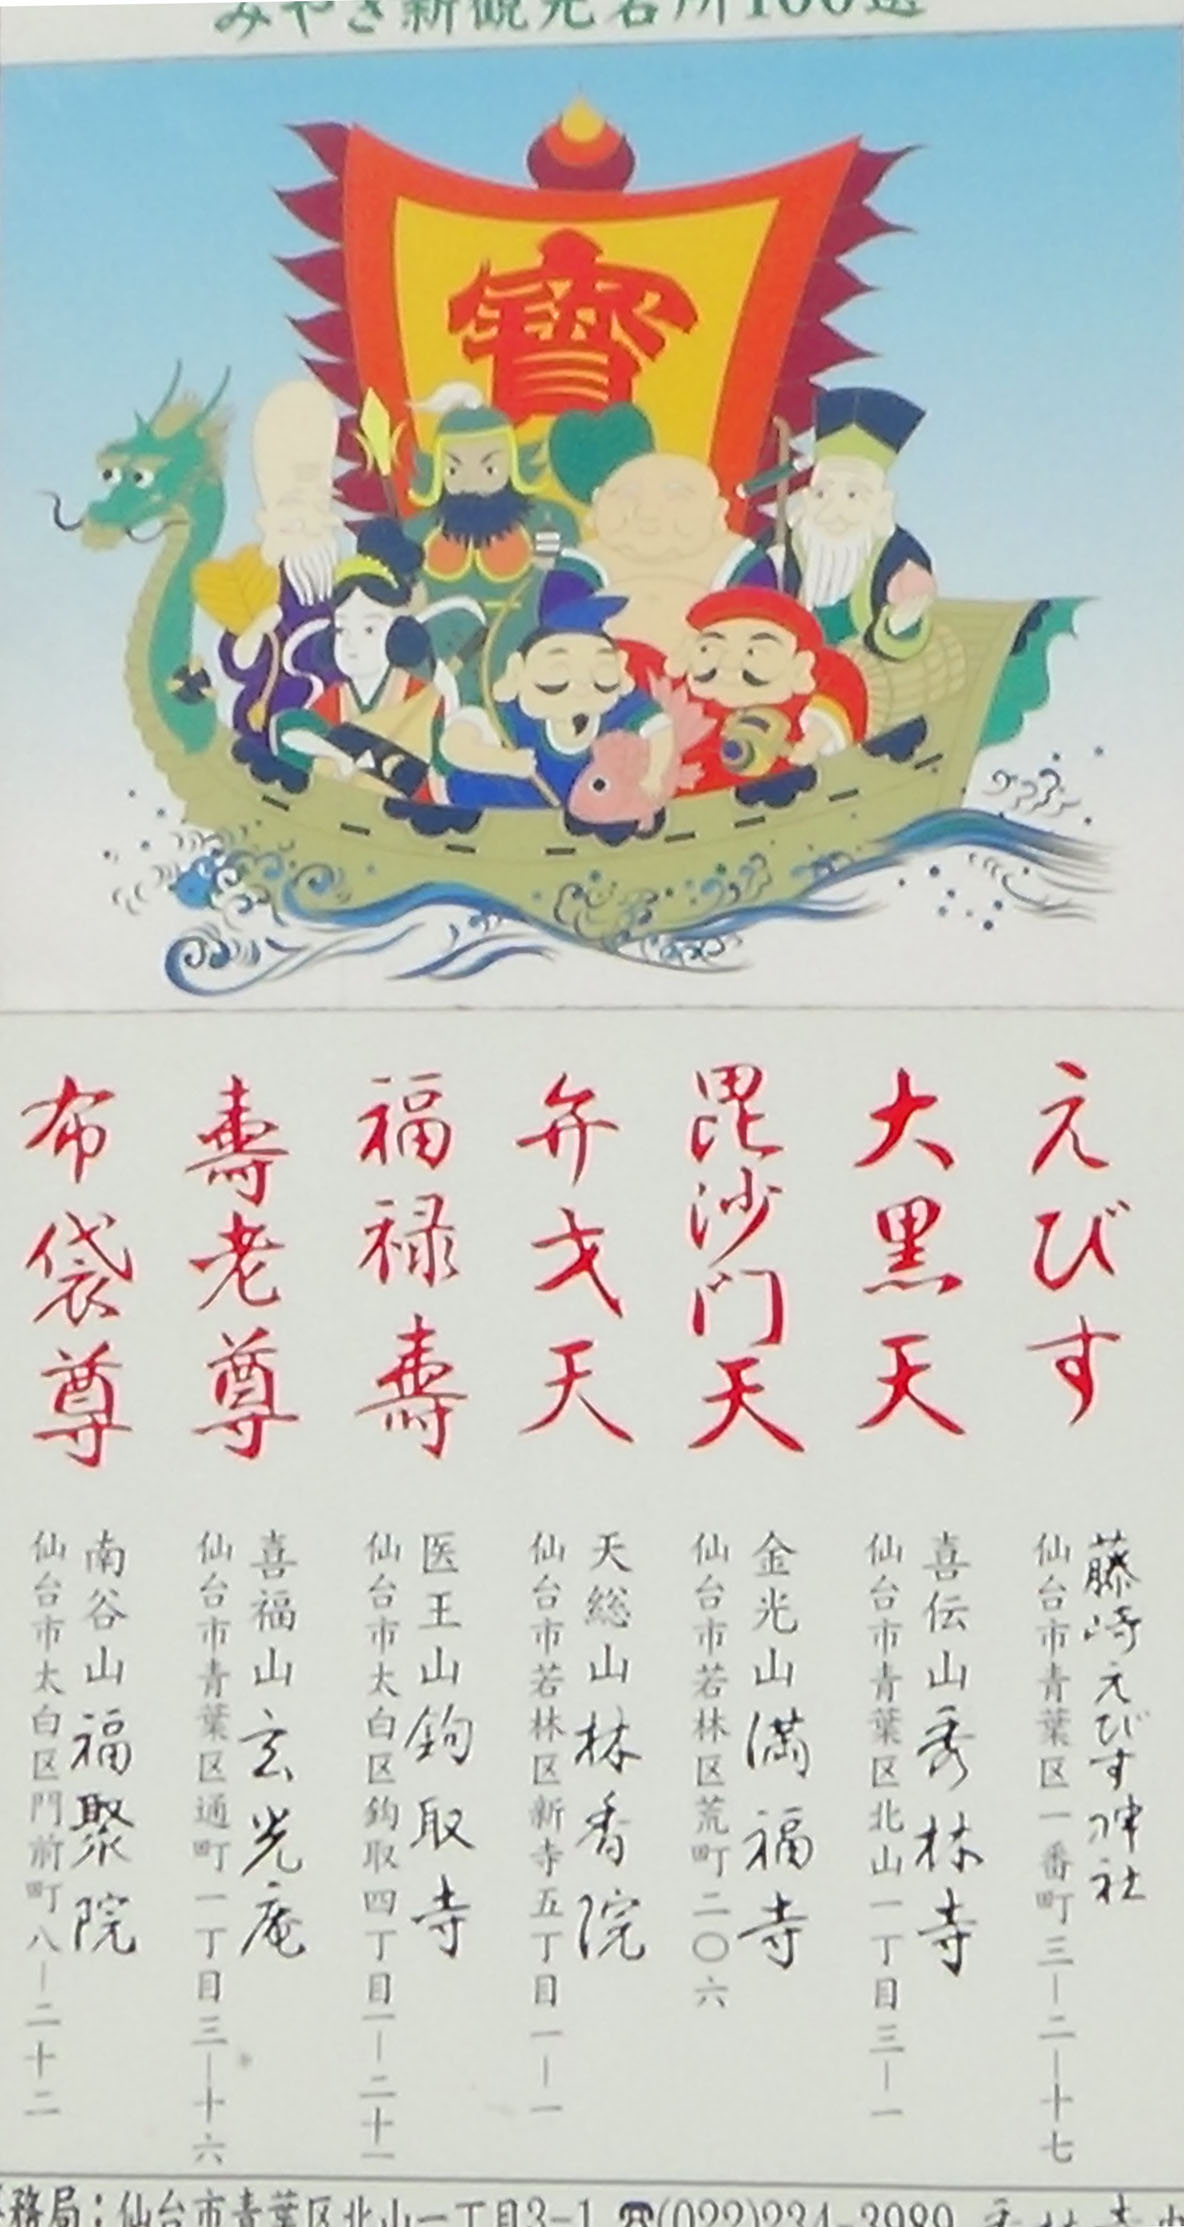 みやぎ新観光名所100選
寶
えびす
藤崎えびす神社
仙台市青葉区一番町三―二―十七
大黒天
喜伝山秀林寺
仙台市青葉区北山一丁目三―一
毘沙门天
金光山満福寺
仙台市若林区荒町二〇六
弁才天
天総山林香院
仙台市若林区新寺五丁目一―一
福禄寿
医王山鉤取寺
仙台市太白区鈎取四丁目一―二十一
壽老尊
喜福山玄光庵
仙台市青葉区通町一丁目三―十六
布袋尊
南谷山福聚院
仙台市太白区門前町八―二十二
務局:仙台市青葉区北山一丁目3-1 ☎(022)234-3989 秀林寺内